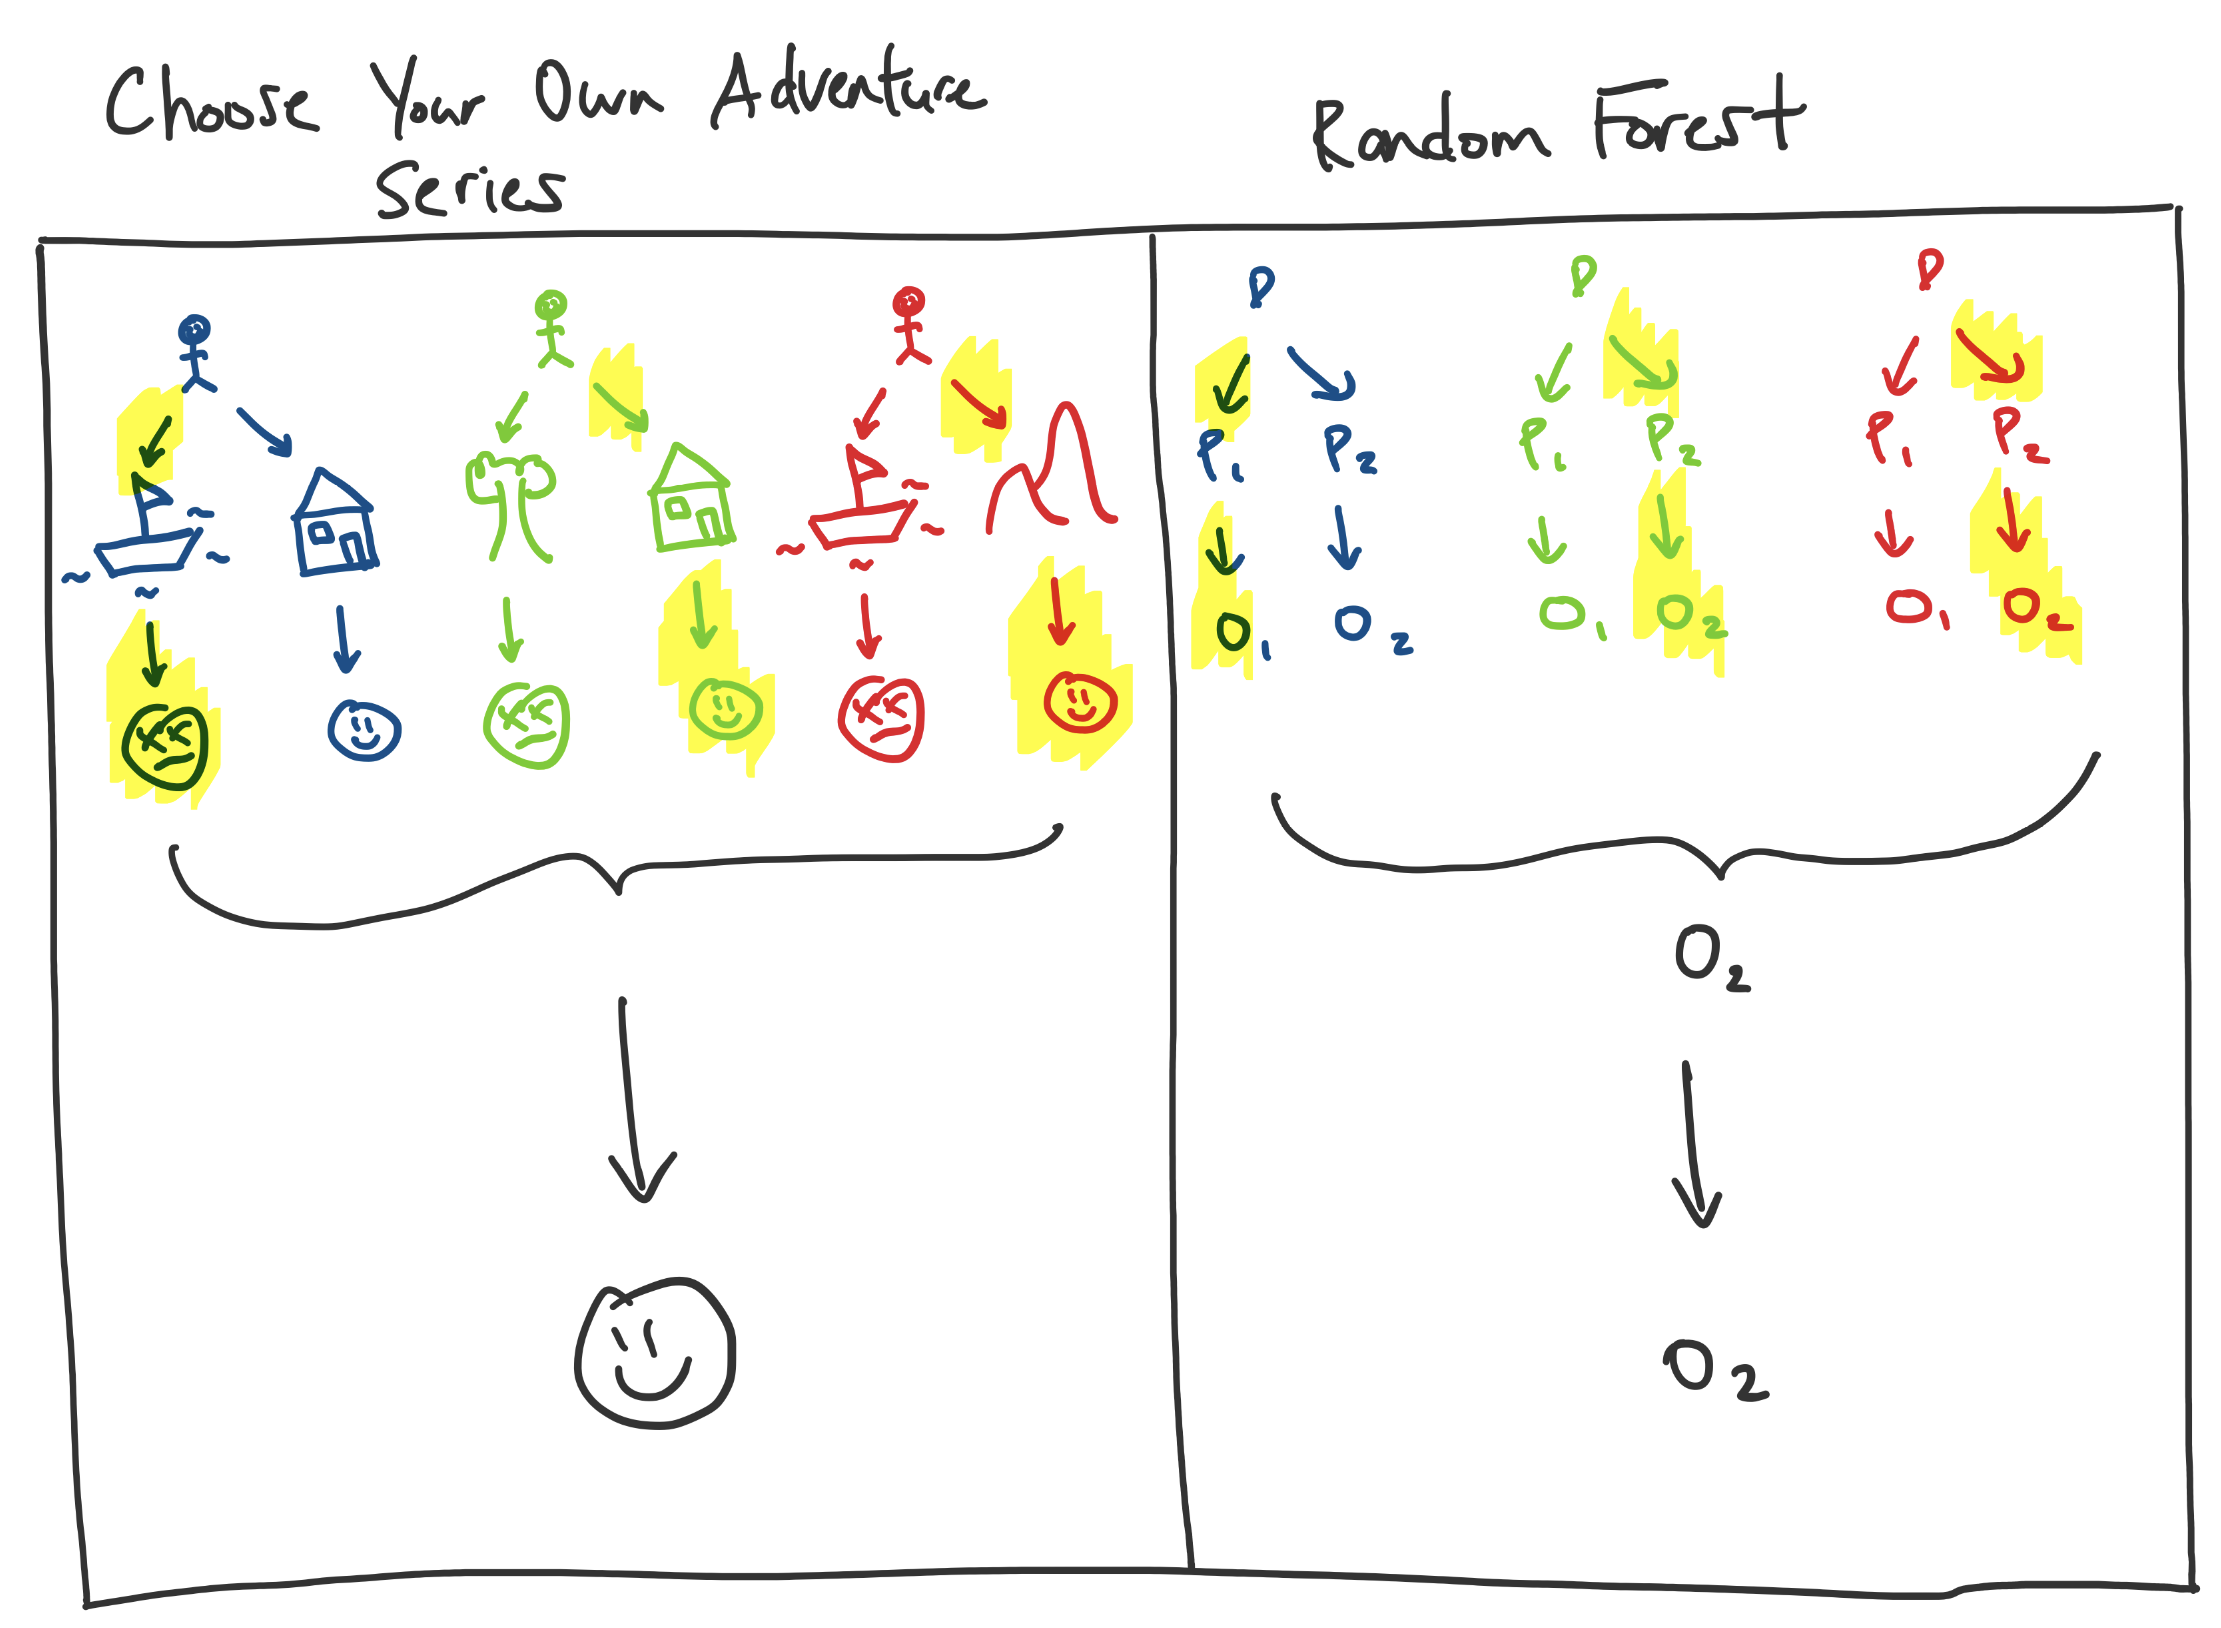 Choose Your Own Adventure
Series
Random Forest
P P P
P₁ P₂ P₁ P₂ P₁ P₂
O₁ O₂ O₁ O₂ O₁ O₂
O₂
O₂